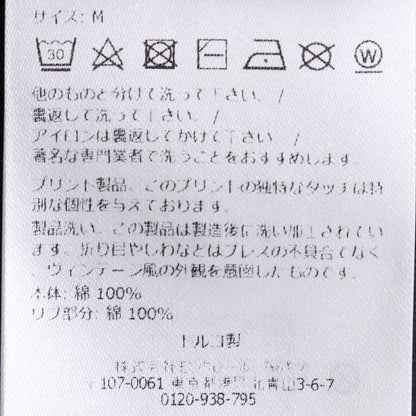 サイズ: M
30
W
他のものと分けて洗って下さい。 /
裏返して洗って下さい。 /
アイロンは裏返してかけて下さい。 /
著名な専門業者で洗うことをおすすめします。
プリント製品。このプリントの独特なタッチは特
別な個性を与えております。
製品洗い。この製品は製造後に洗い加工されてい
ます。折り目やしわなどはプレスの不具合でなく
、ヴィンテージ風の外観を意図したものです。
本体: 綿 100%
リブ部分: 綿 100%
トルコ製
株式会社
〒107-0061 東京都港区北青山3-6-7
0120-938-795